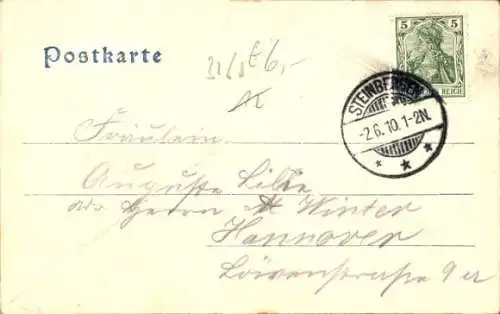 5 5
REICH
Postkarte
STEINBERGEN
-2.6.10.1-2N.
Fräulein
Auguste Lilke
adr Herrn A Winter
Hannover
Löwenstraße 9 a